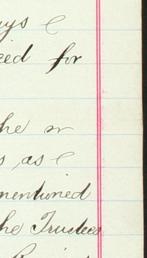 ays
eed for
he
s as
mentioned
he Trustees